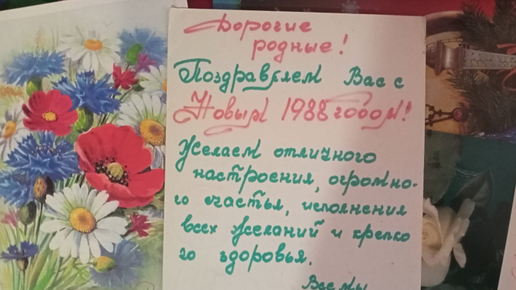 Дорогие
родные!
Поздравляем Вас с
Новым 1988 годом!
Желаем отличного
настроения, огромно-
го счастья, исполнения
всех желаний и крепко
го здоровья.